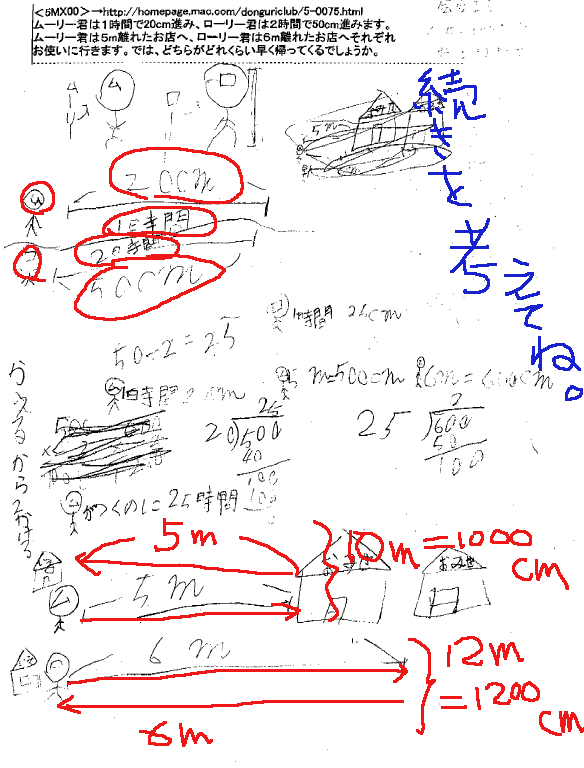 <5MX00>→http://homepage.mac.com/donguriclub/5-0075.html
ムーリー君は1時間で20cm進み、ローリー君は2時間で50cm進みます。
ムーリー君は5m離れたお店へ、ローリー君は6m離れたお店へそれぞれ
お使いに行きます。では、どちらがどれくらい早く帰ってくるでしょうか。
続きを考えてね。
ム
ロ
5m
20cm
ム
1時間
2時間
50cm
50÷2=25
1時間 25cm
ム 1時間 20cm
5m=500cm
6m=600cm
25
20)500
40
100
100
2
25)600
50
100
ムがつくのに25時間
かえるから2かける
5m
10m=1000cm
ム
5m
おみせ
おみせ
6m
12m=1200cm
6m